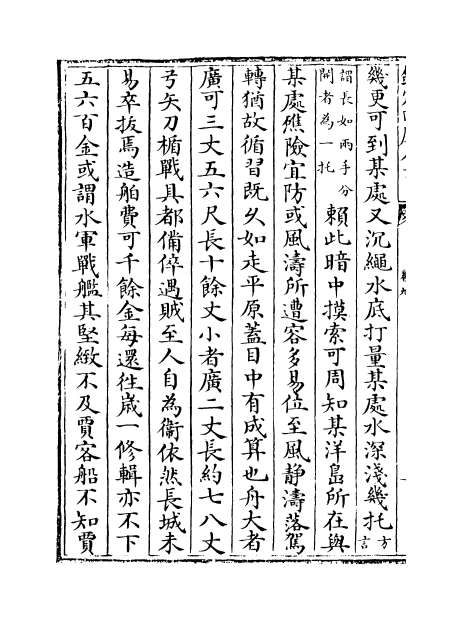 幾更可到某處又沉繩水底打量某處水深淺幾托方言
謂長如兩手分開者為一托賴此暗中摸索可周知某洋島所在與
某處礁險宜防或風濤所遭容多易位至風静濤落駕
轉猶故循習既久如走平原蓋目中有成算也舟大者
廣可三丈五六尺長十餘丈小者廣二丈長約七八丈
弓矢刀楯戰具都備倅遇賊至人自為衞依然長城未
易卒拔焉造舶費可千餘金每還往歲一修輯亦不下
五六百金或謂水軍戰艦其堅緻不及賈客船不知賈